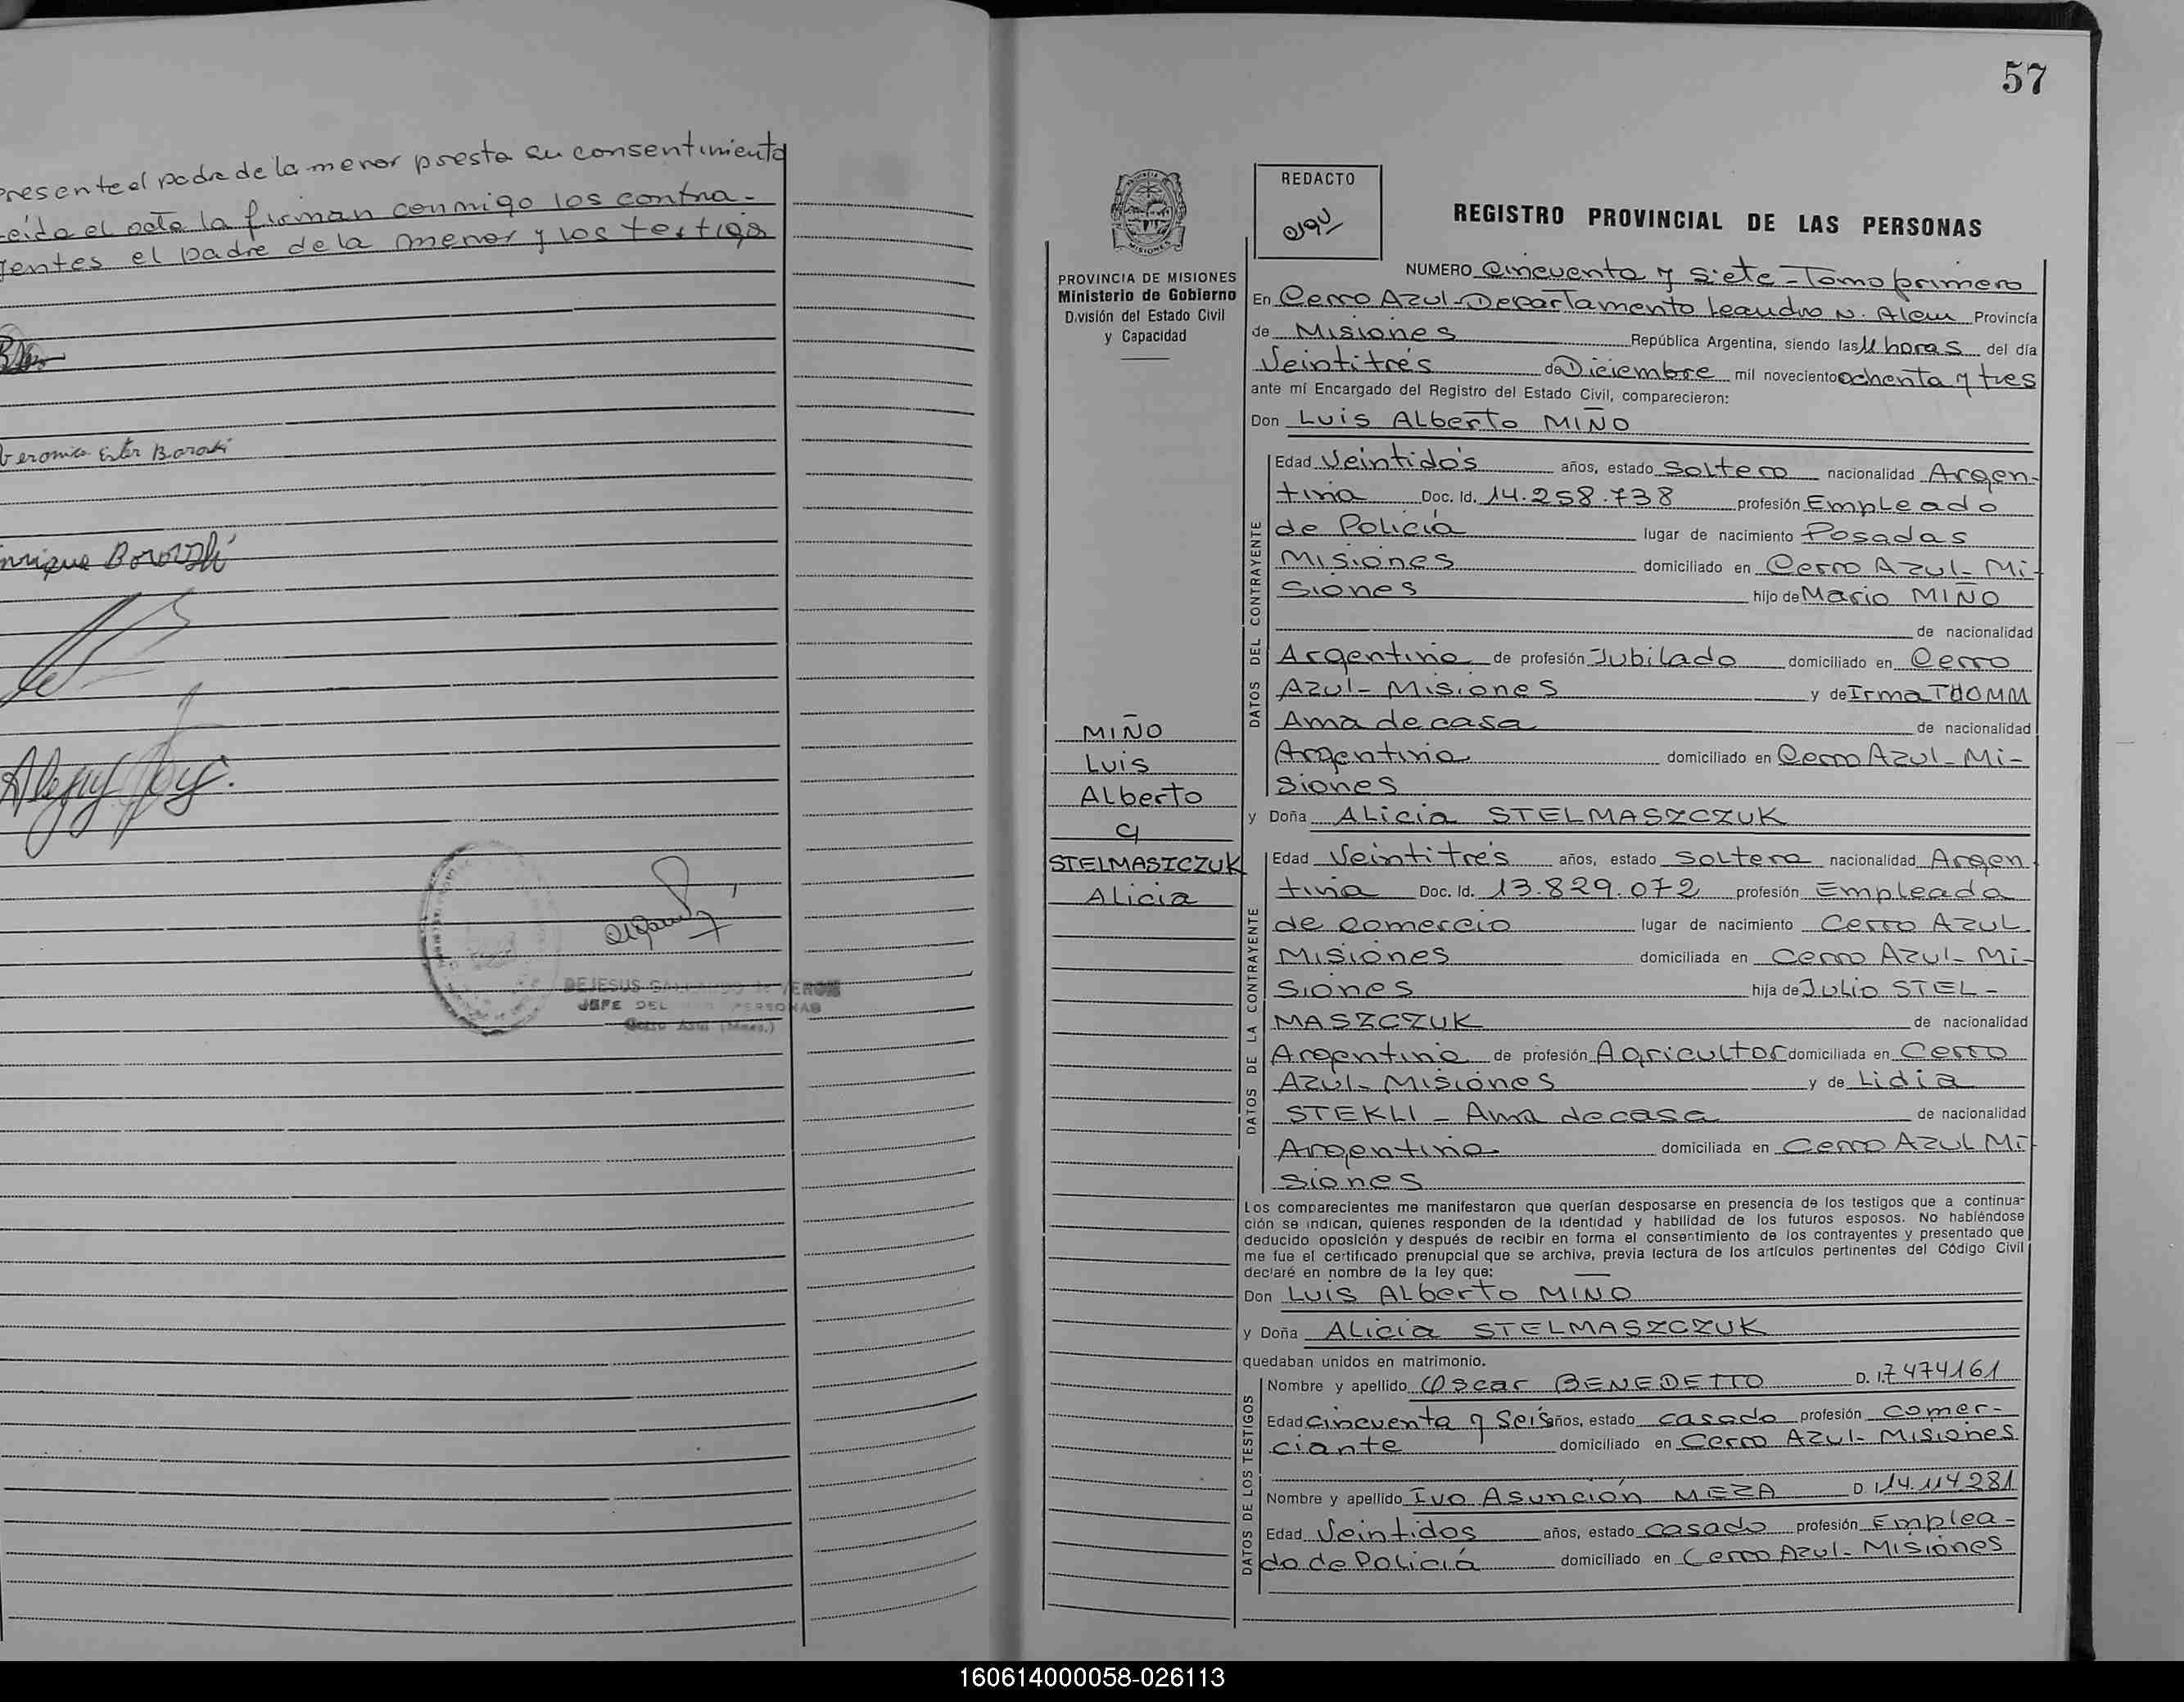 presente el padre de la menor presta su consentimiento
leida el acta la firman conmigo los contra-
yentes el padre de la menor y los testigos
Veronica Ester Boroski
Enrique Borovski
DEJESUS GALLARDO de VERON
JEFE DEL PERSONAS
Cerro Azul (Mnes.)
57
PROVINCIA DE MISIONES
Ministerio de Gobierno
División del Estado Civil
y Capacidad
MIÑO
Luis
Alberto
y
STELMASZCZUK
Alicia
REDACTO
REGISTRO PROVINCIAL DE LAS PERSONAS
NUMERO Cincuenta y siete - Tomo primero
En Cerro Azul - Departamento Leandro N. Alem Provincia
de Misiones República Argentina, siendo las 11 horas del día
Veintitrés de Diciembre mil novecientos ochenta y tres
ante mí Encargado del Registro del Estado Civil, comparecieron:
Don Luis Alberto MIÑO
DATOS DEL CONTRAYENTE
Edad Veintidós años, estado Soltero nacionalidad Argen-
tina Doc. Id. 14.258.738 profesión Empleado
de Policía lugar de nacimiento Posadas
Misiones domiciliado en Cerro Azul - Mi-
siones hijo de Mario MIÑO
de nacionalidad
Argentina de profesión Jubilado domiciliado en Cerro
Azul - Misiones y de Irma THOMM
Ama de casa de nacionalidad
Argentina domiciliado en Cerro Azul - Mi-
siones
y Doña Alicia STELMASZCZUK
DATOS DE LA CONTRAYENTE
Edad Veintitrés años, estado Soltera nacionalidad Argen
tina Doc. Id. 13.829.072 profesión Empleada
de comercio lugar de nacimiento Cerro Azul
Misiones domiciliada en Cerro Azul - Mi-
siones hija de Julio STEL-
MASZCZUK de nacionalidad
Argentina de profesión Agricultor domiciliada en Cerro
Azul - Misiones y de Lidia
STEKLI - Ama de casa de nacionalidad
Argentina domiciliada en Cerro Azul Mi
siones
Los comparecientes me manifestaron que querían desposarse en presencia de los testigos que a continua-
ción se indican, quienes responden de la identidad y habilidad de los futuros esposos. No habiéndose
deducido oposición y después de recibir en forma el consentimiento de los contrayentes y presentado que
me fue el certificado prenupcial que se archiva, previa lectura de los artículos pertinentes del Código Civil
declaré en nombre de la ley que:
Don Luis Alberto MIÑO
y Doña Alicia STELMASZCZUK
quedaban unidos en matrimonio.
DATOS DE LOS TESTIGOS
Nombre y apellido Oscar BENEDETTO D. I. 7474161
Edad cincuenta y seis años, estado casado profesión comer-
ciante domiciliado en Cerro Azul - Misiones
Nombre y apellido Ivo Asunción MEZA D. I. 14.114281
Edad Veintidos años, estado casado profesión Emplea-
do de Policía domiciliado en Cerro Azul - Misiones
160614000058-026113